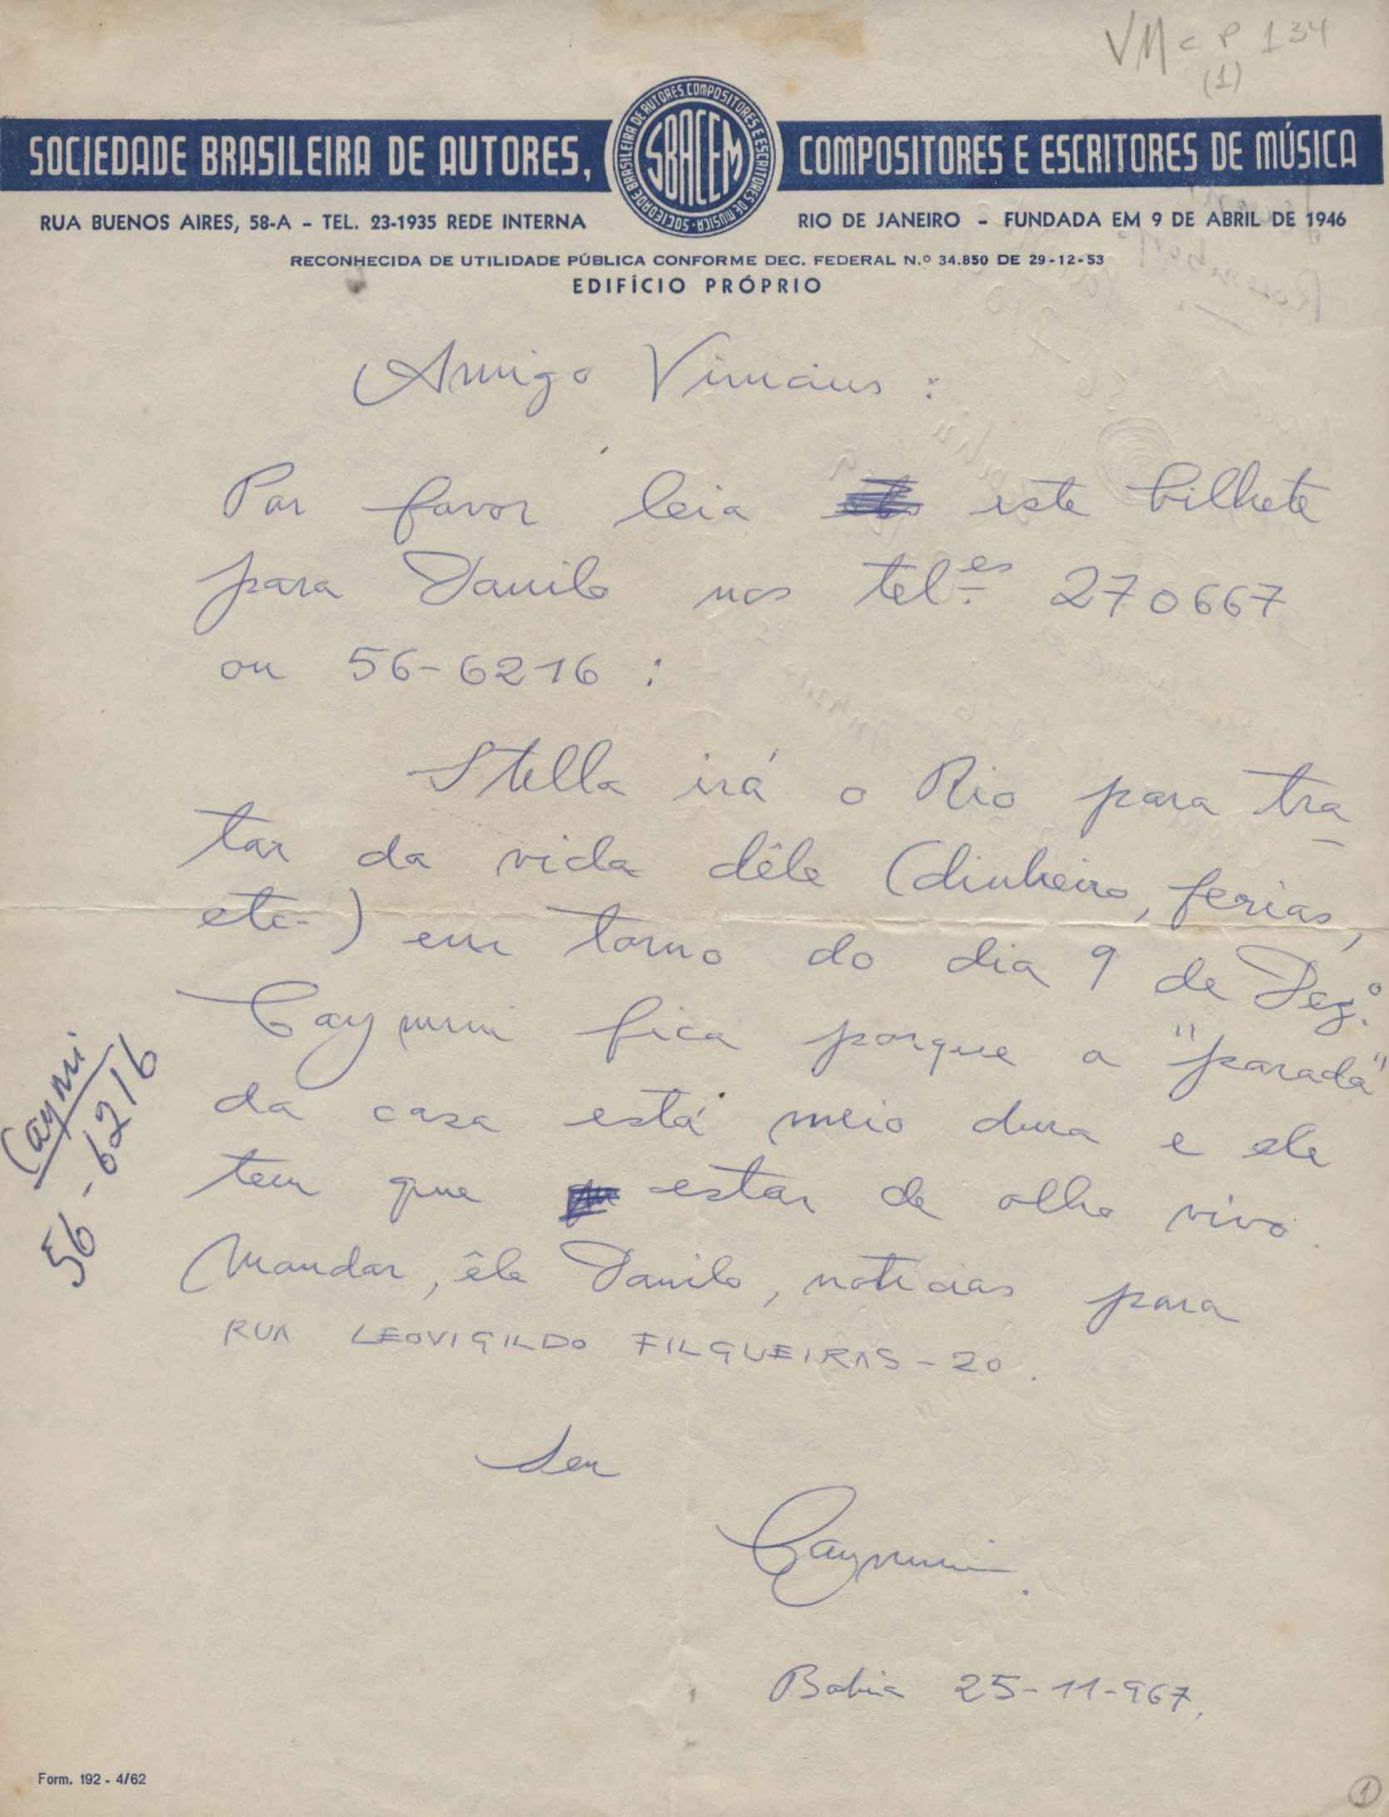 VMcP134
(1)
SOCIEDADE BRASILEIRA DE AUTORES,
SBACEM
SOCIEDADE BRASILEIRA DE AUTORES COMPOSITORES E ESCRITORES DE MUSICA
COMPOSITORES E ESCRITORES DE MÚSICA
RUA BUENOS AIRES, 58-A - TEL. 23-1935 REDE INTERNA
RIO DE JANEIRO - FUNDADA EM 9 DE ABRIL DE 1946
RECONHECIDA DE UTILIDADE PÚBLICA CONFORME DEC. FEDERAL N.º 34.850 DE 29-12-53
EDIFÍCIO PRÓPRIO
Amigo Vinicius:
Por favor leia este bilhete
para Danilo nos tel.es 270667
ou 56-6216:
Stella irá o Rio para tra-
tar da vida dêle (dinheiro, ferias,
etc-) em torno do dia 9 de Dez.º
Caymmi fica porque a "parada"
da casa está meio dura e ele
tem que estar de olho vivo.
Mandar, êle Danilo, noticias para
RUA LEOVIGILDO FILGUEIRAS-20.
Seu
Caymmi.
Bahia 25-11-967.
Caymi
56-6216
Form. 192 - 4/62
1